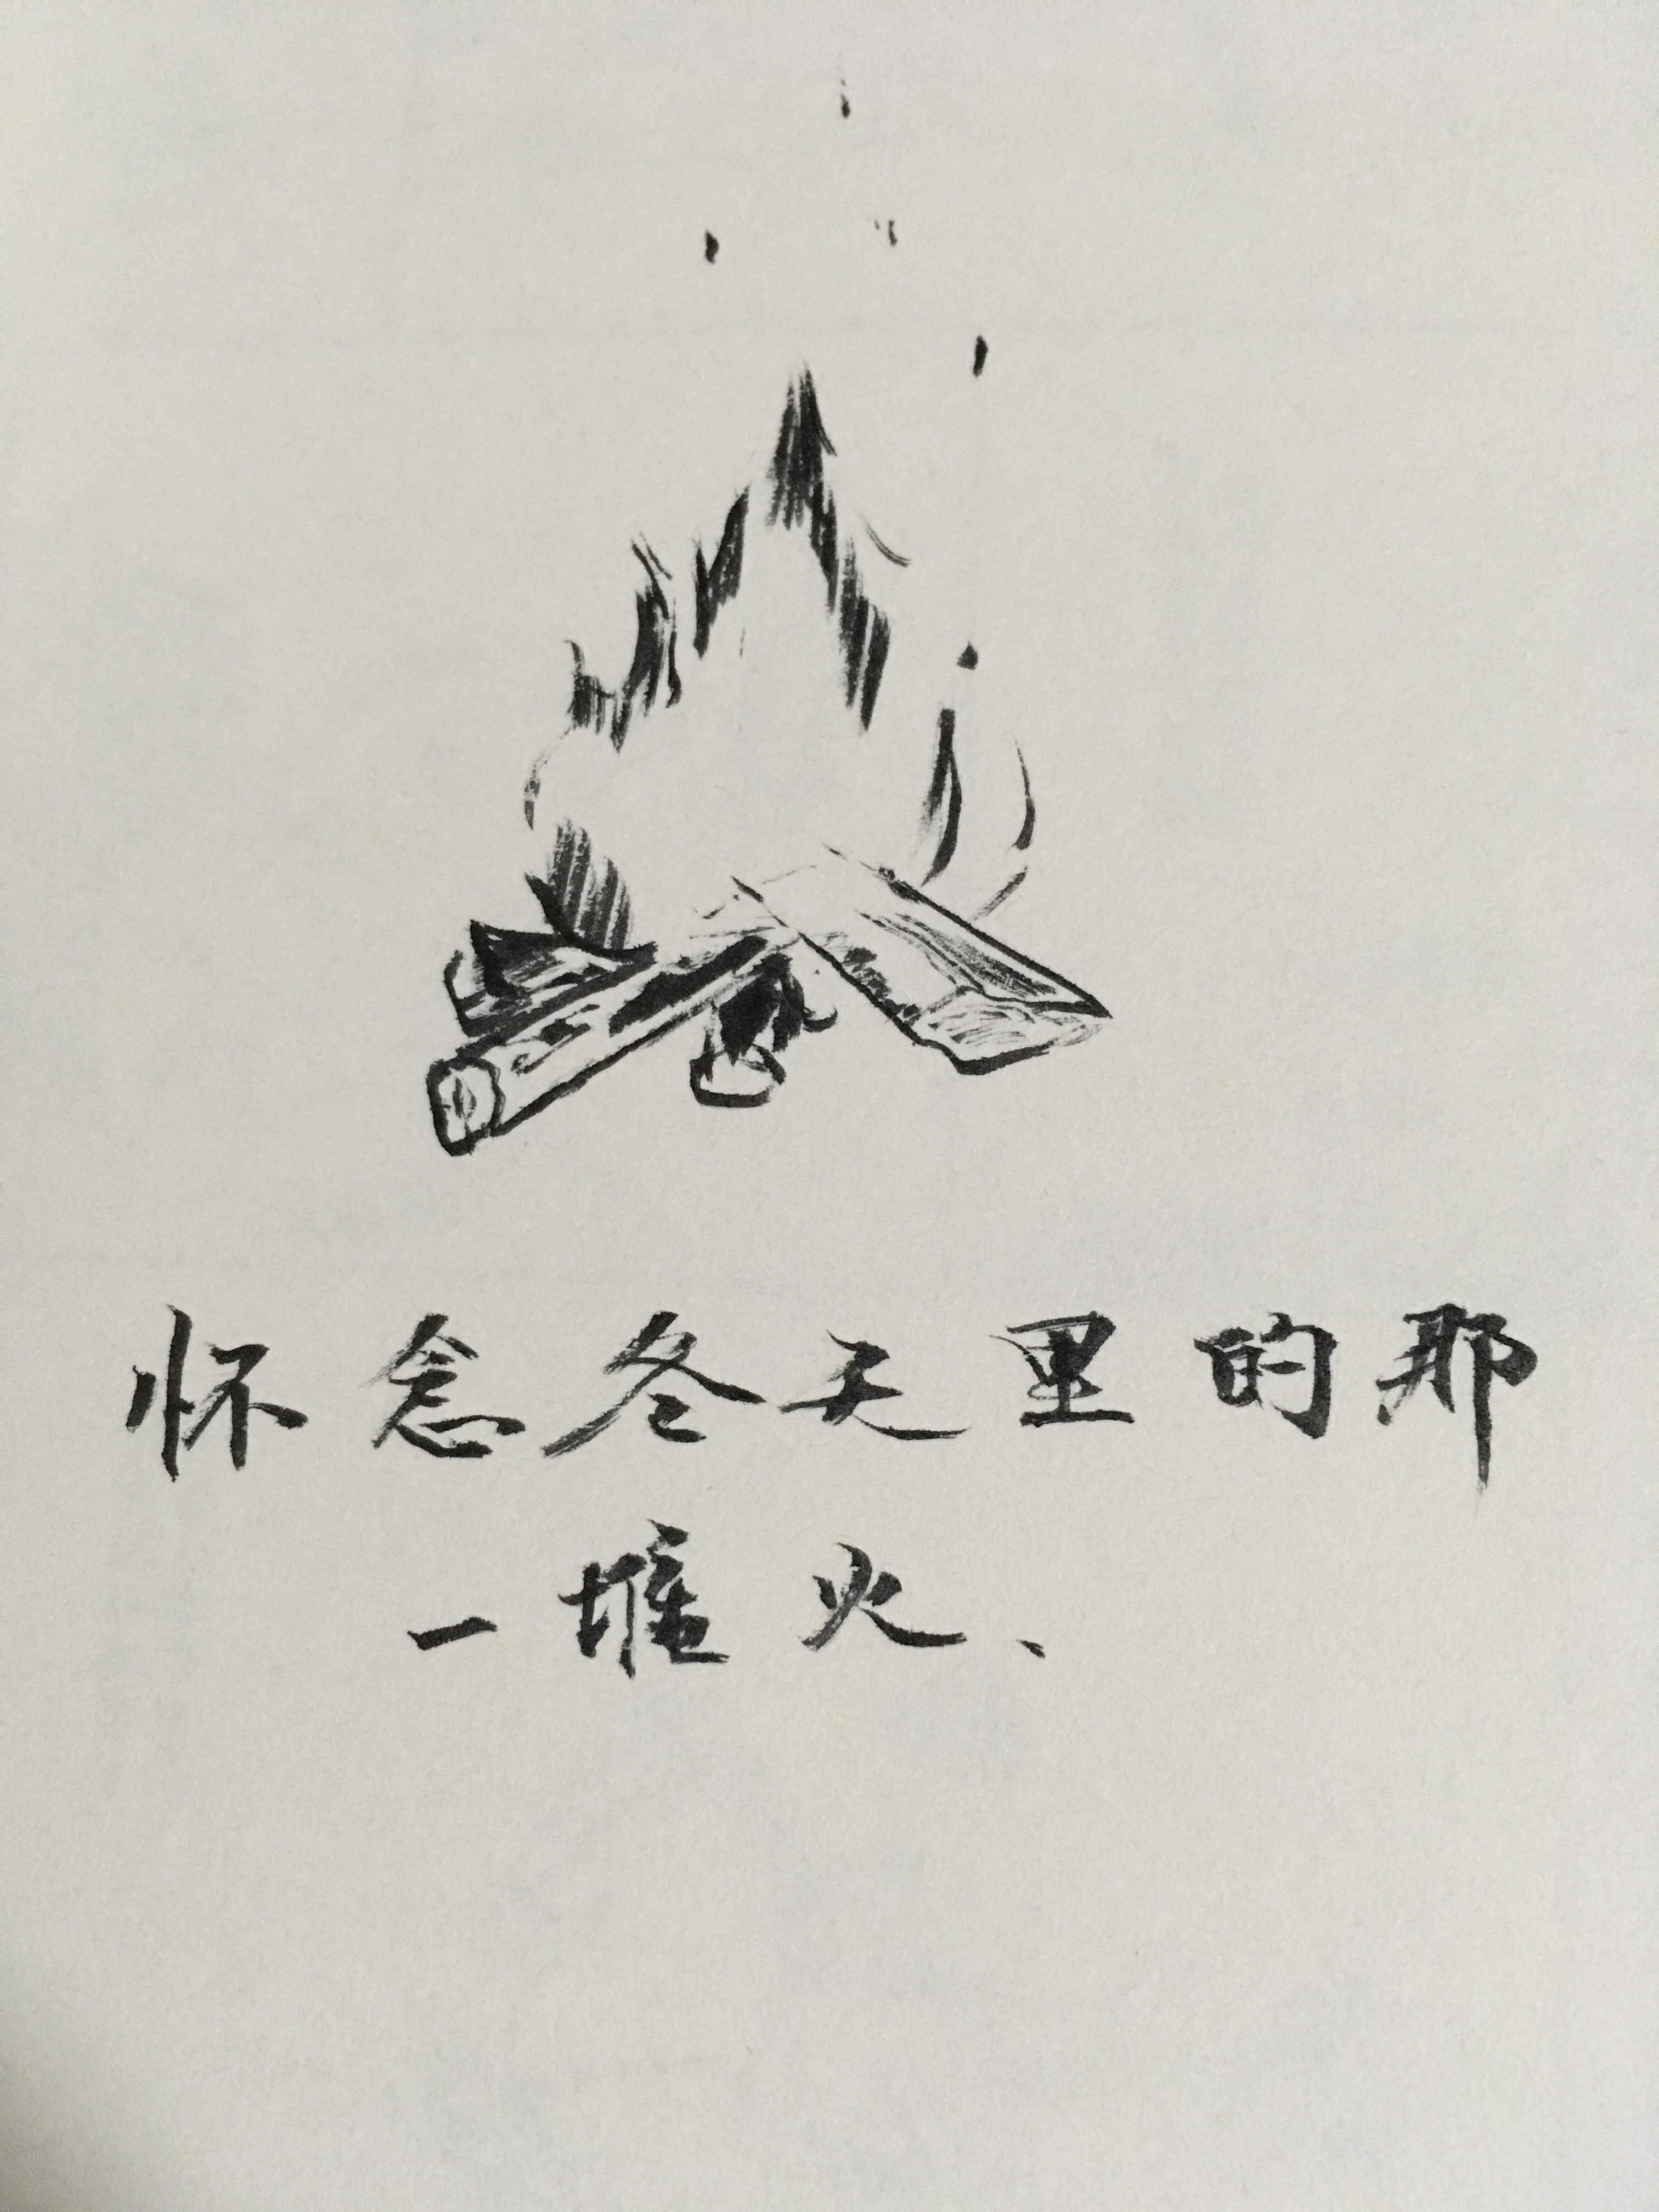 怀念冬天里的那
一堆火、